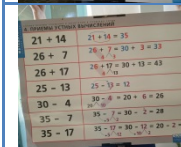 ПРИЕМЫ УСТНЫХ ВЫЧИСЛЕНИЙ
21 + 14 21 + 14 = 35
26 + 7 26 + 7 = 30 + 3 = 33
26 + 17 26 + 17 = 30 + 13 = 43
25 - 13 25 - 13 = 12
30 - 4 30 - 4 = 20 + 6 = 26
35 - 7 35 - 7 = 30 - 2 = 28
35 - 17 35 - 17 = 30 - 12 = 20 - 2 =